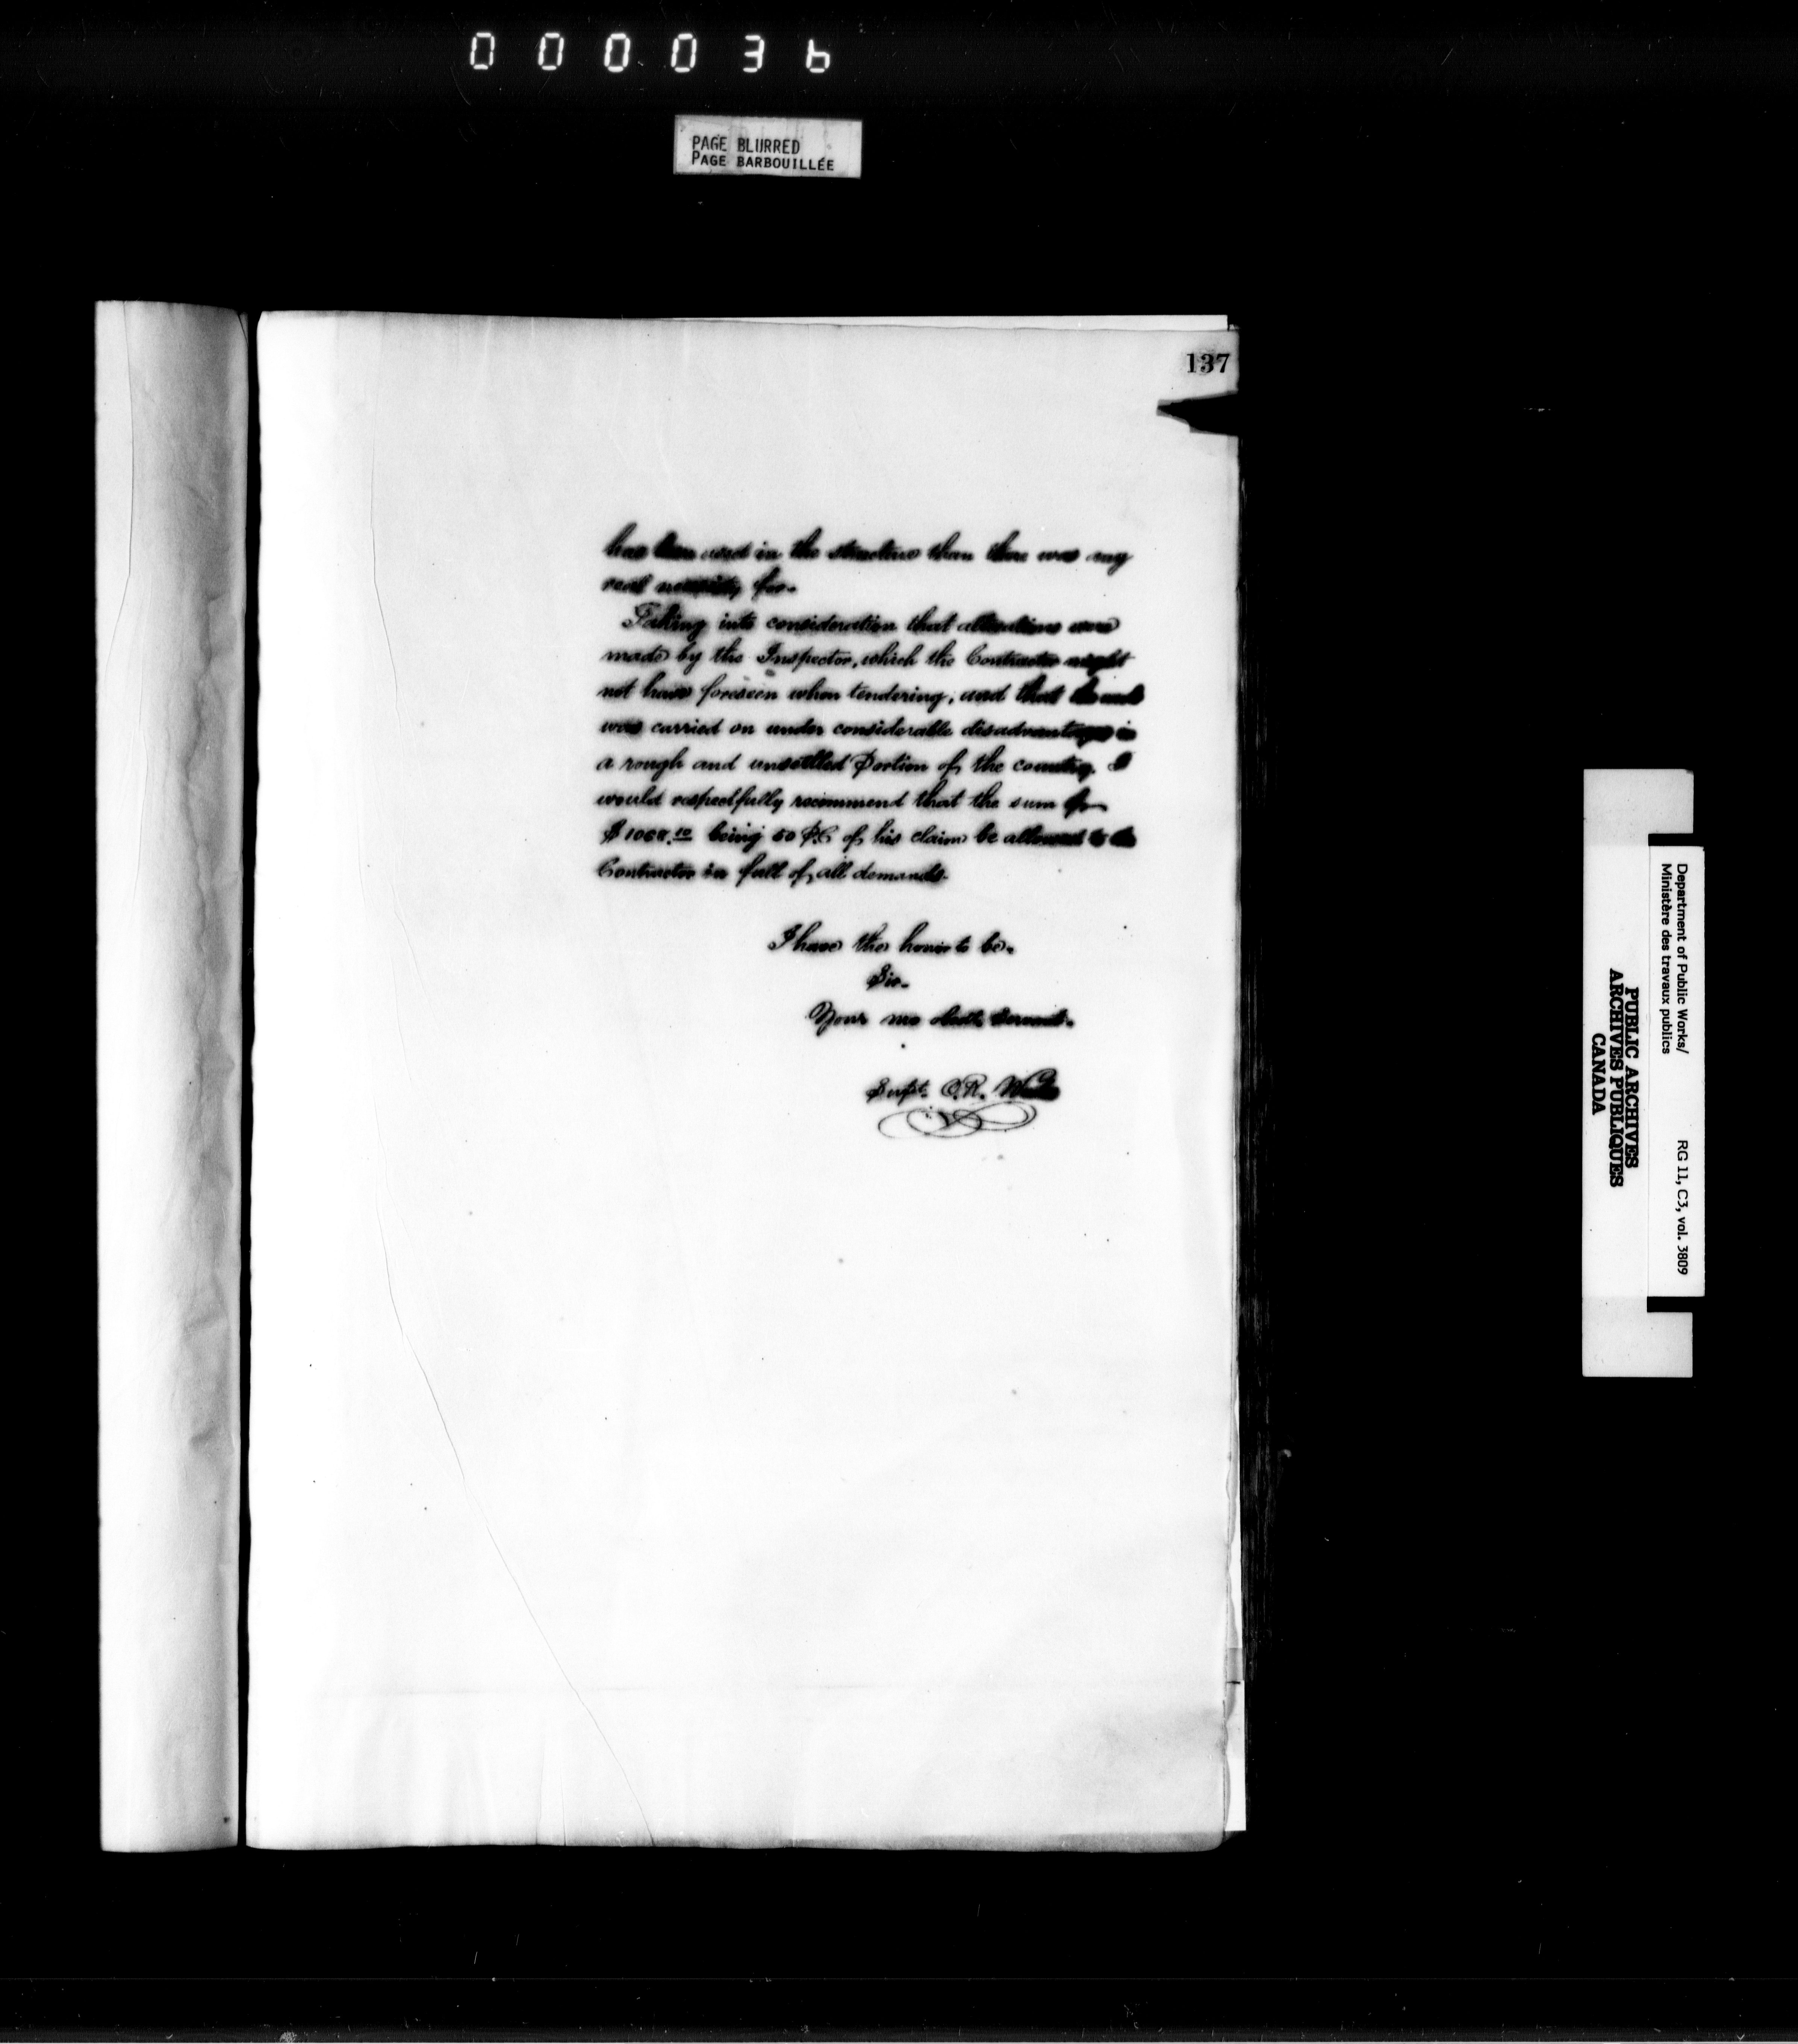 000036
PAGE BLURRED
PAGE BARBOUILLÉE
137
has been used in the structure than there was any
real necessity for.
Taking into consideration that alterations were
made by the Inspector, which the Contractor might
not have foreseen when tendering, and that the work
was carried on under considerable disadvantages in
a rough and unsettled Portion of the country. I
would respectfully recommend that the sum of
being 50 P.C of his claim be allowed to the
Contractor in full of all demands.
I have the honor to be.
Sir.
Your mo obedt. Servant.
Supt. O.R. Works
Department of Public Works/
Ministère des travaux publics
RG 11, C3, vol. 3809
PUBLIC ARCHIVES
ARCHIVES PUBLIQUES
CANADA